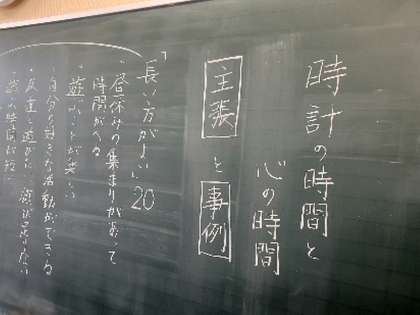 時計の時間と
心の時間
主張と事例
「長い方がよい」20
・昼休みの集まりがあって
時間がへる
・遊ぶことが楽しい
・自分の好きな活動ができる
・友達と遊びたい